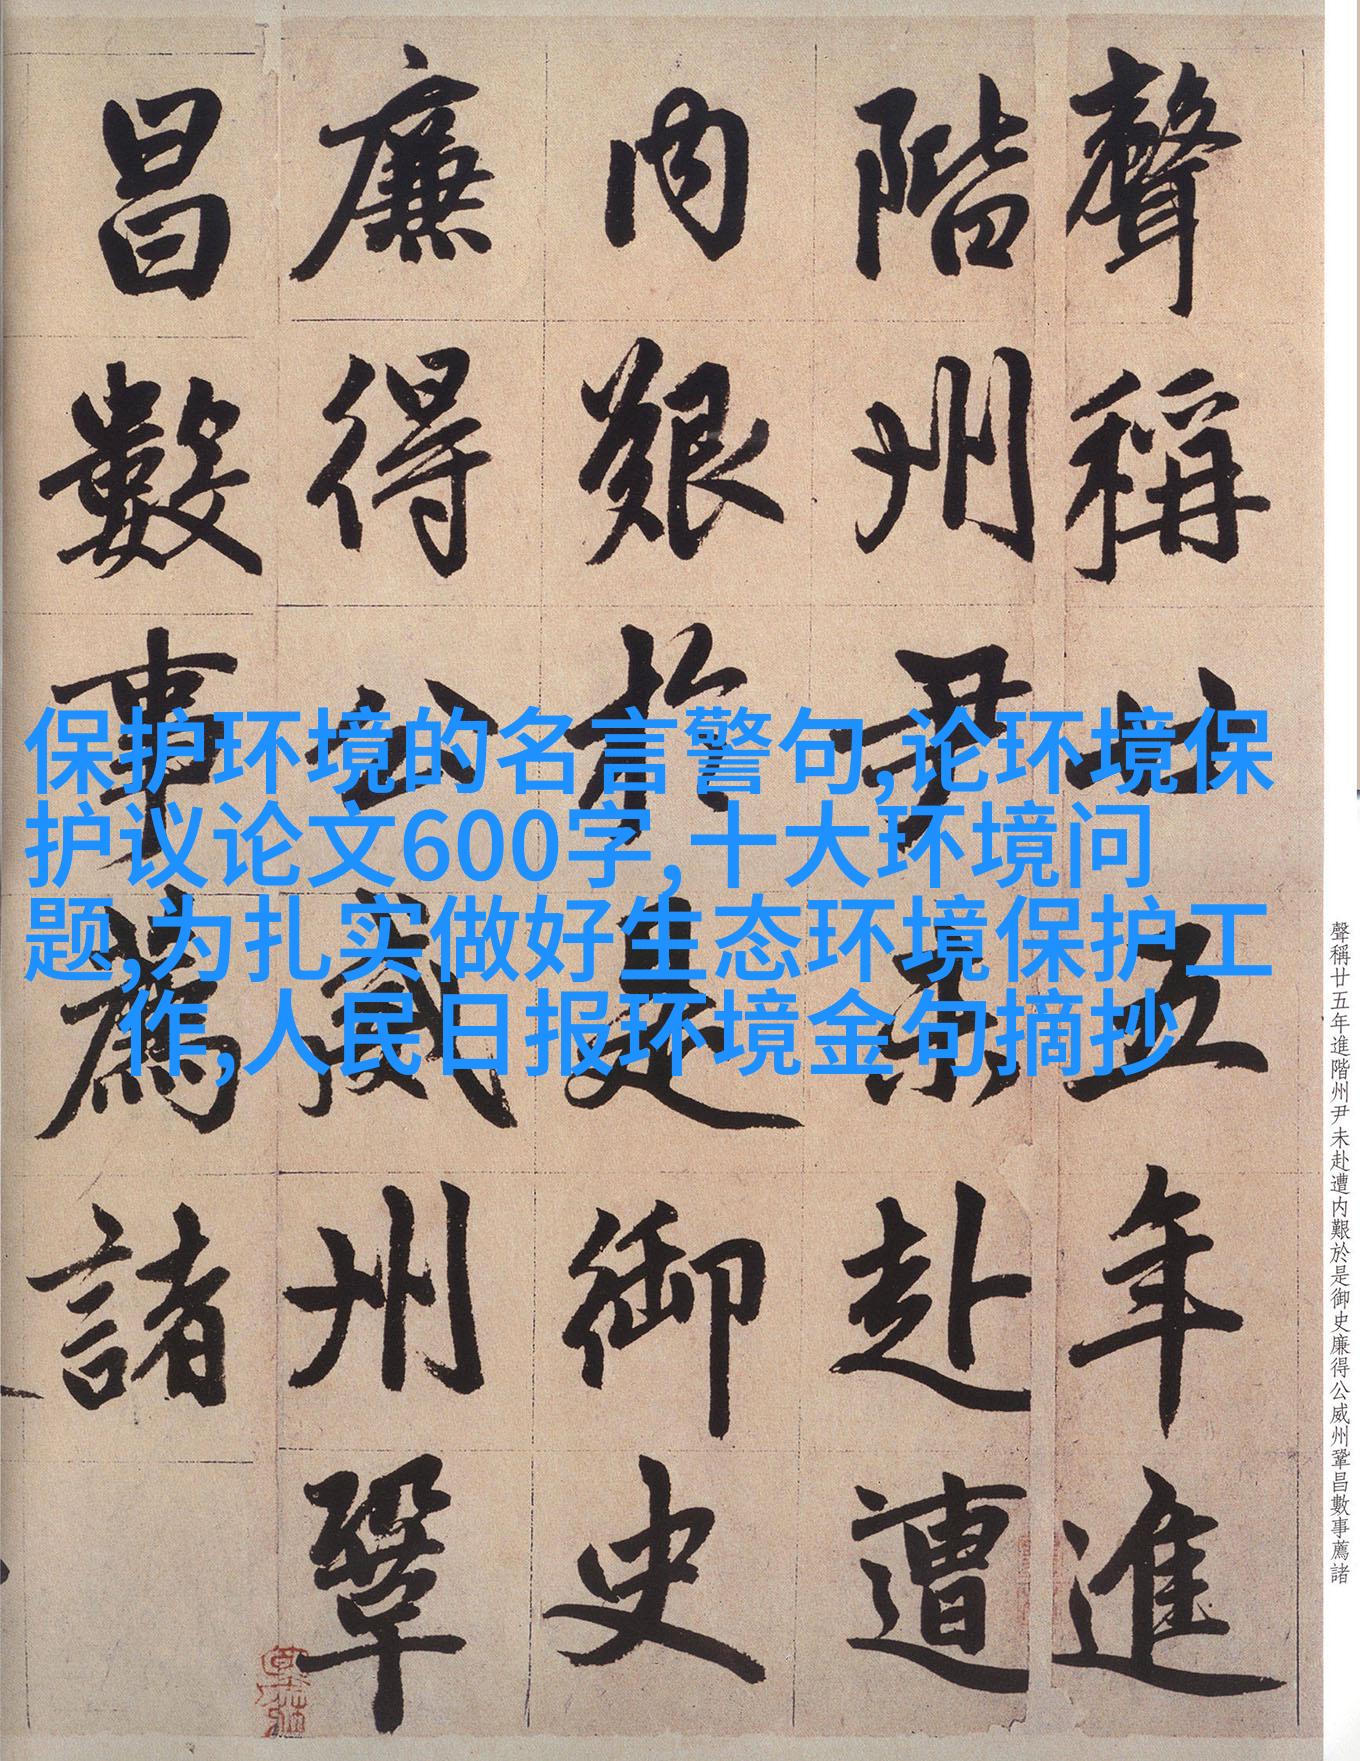 聲稱廿五年進
階州尹未赴遭
内艱於是御史
廉得公威州鞏
昌數事薦諸
保护环境的名言警句,论环境保
护议论文600字,十大环境问
题,为扎实做好生态环境保护工
作,人民日报环境金句摘抄
聲稱廿五年進階州尹未赴遭内艱於是御史廉得公威州鞏昌數事薦諸